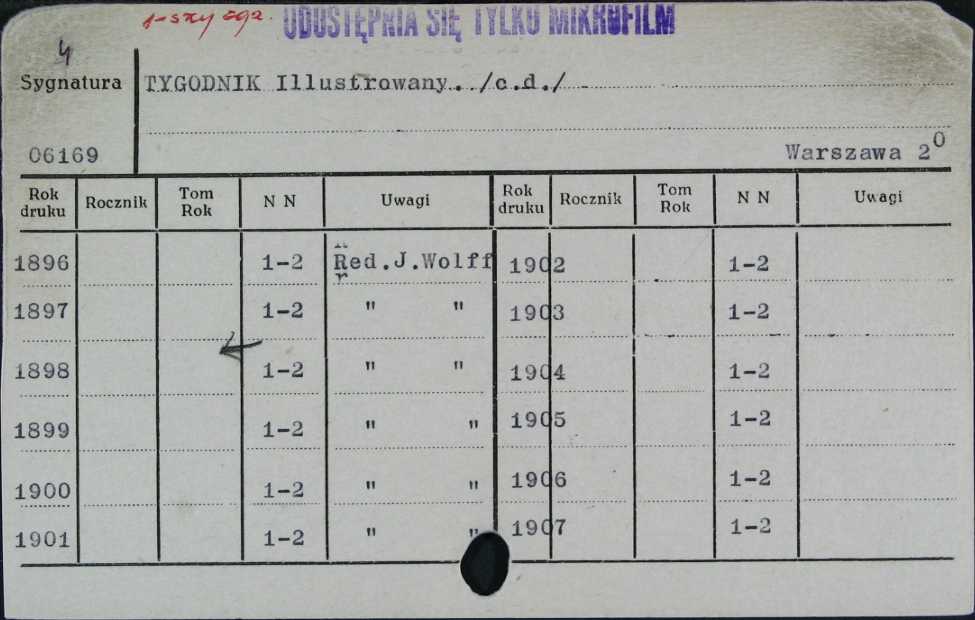 1-szy egz. UDOSTĘPNIA SIĘ TYLKO MIKROFILM
4
Sygnatura TYGODNIK Illustrowany. /c.d./
06169 Warszawa 2⁰
Rok druku Rocznik Tom Rok N N Uwagi Rok druku Rocznik Tom Rok N N Uwagi
1896 1-2 Red.J.Wolff 1902 1-2
1897 1-2 " " 1903 1-2
1898 1-2 " " 1904 1-2
1899 1-2 " " 1905 1-2
1900 1-2 " " 1906 1-2
1901 1-2 " " 1907 1-2